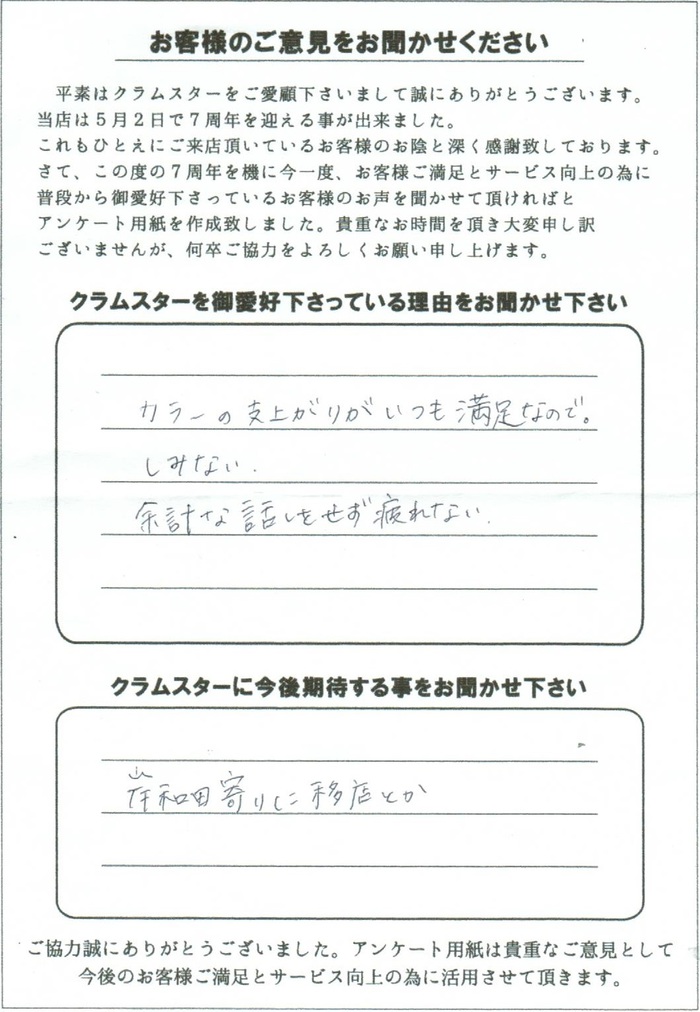 お客様のご意見をお聞かせください
平素はクラムスターをご愛顧下さいまして誠にありがとうございます。
当店は５月２日で７周年を迎える事が出来ました。
これもひとえにご来店頂いているお客様のお陰と深く感謝致しております。
さて、この度の７周年を機に今一度、お客様ご満足とサービス向上の為に
普段から御愛好下さっているお客様のお声を聞かせて頂ければと
アンケート用紙を作成致しました。貴重なお時間を頂き大変申し訳
ございませんが、何卒ご協力をよろしくお願い申し上げます。
クラムスターを御愛好下さっている理由をお聞かせ下さい
カラーの支上がりがいつも満足なので。
しみない.
余計な話しをせず疲れない.
クラムスターに今後期待する事をお聞かせ下さい
岸和田寄りに移店とか
ご協力誠にありがとうございました。アンケート用紙は貴重なご意見として
今後のお客様ご満足とサービス向上の為に活用させて頂きます。